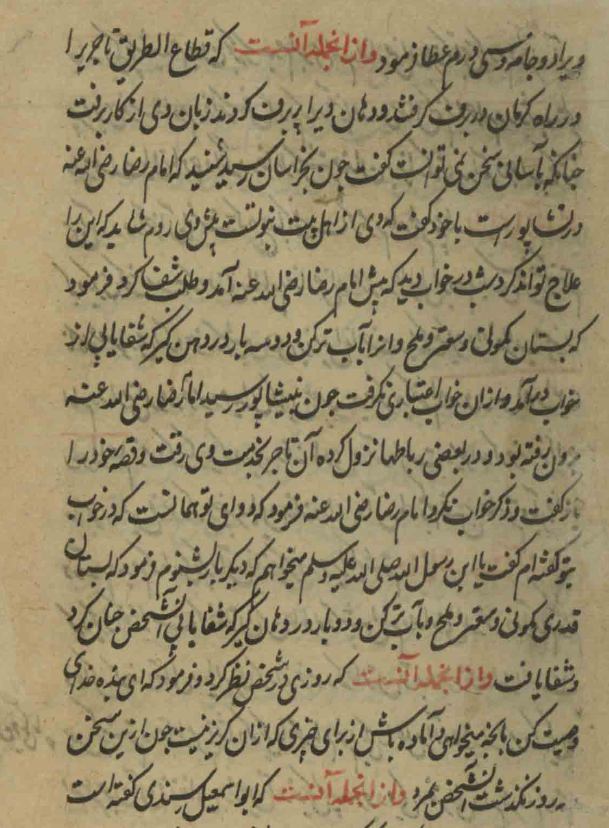 ویرا دو جامه و سی درم عطا فرمود و از انجمله آنست که قطاع الطریق تاجریرا
در راه کرمان در برف گرفتند و دهان ویرا پر برف کردند زبان وی از کار برفت
چنانکه بآسانی سخن نمی توانست گفت چون بخراسان رسید شنید که امام رضا رضی الله عنه
در نشاپورست با خود گفت که وی از اهل بیت نبوتست پیش وی روم شاید که این را
علاج تواند کرد شب در خواب دید که پیش امام رضا رضی الله عنه آمد و طلب شفا کرد فرمود
که بستان کمونی و سعتر و ملح و انرا بآب تر کن و دو سه بار در دهن گیر که شفا یابی از
خواب درآمد و ازان خواب اعتباری نگرفت چون بنیشاپور رسید امام رضا رضی الله عنه
برون رفته بود و در بعضی رباطها نزول کرده آن تاجر بخدمت وی رفت و قصه خود را
بازگفت و ذکر خواب نکرد امام رضا رضی الله عنه فرمود که دوای تو همانست که در خواب
بتو گفته ام گفت یا ابن رسول الله صلی الله علیه وسلم میخواهم که دیگر بار بشنوم فرمود که بستان
قدری کمونی و سعتر و ملح و بآب تر کن و دو بار در دهان گیر که شفا یابی آنشخص چنان کرد
و شفا یافت و از انجمله آنست که روزی در شخصی نظر کرد و فرمود که ای بنده خدای
وصیت کن بانچه میخواهی و آماده باش از برای چیزی که ازان گریز نیست چون ازین سخن
سه روز بگذشت آنشخص بمرد و از انجمله آنست که ابو اسمعیل سندی گفته است